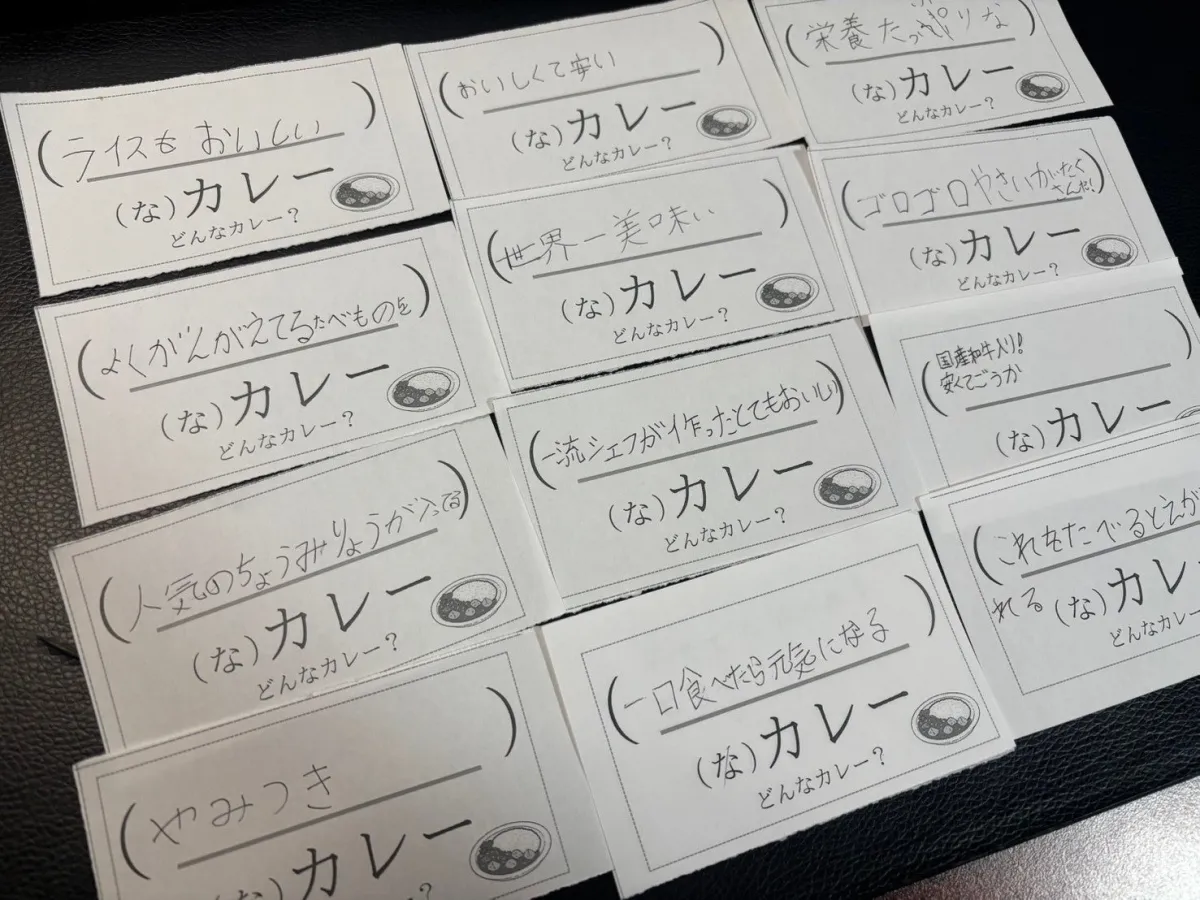 (ライスも おいしい)
(な)カレー
どんなカレー?
(おいしくて安い)
(な)カレー
どんなカレー?
(栄養たっぷりな
(な)カレー
どんなカレー?
(よくがんがえてるたべものを)
(な)カレー
どんなカレー?
(世界一美味い)
(な)カレー
どんなカレー?
(ゴロゴロやさいがたく
さんだ!)
(な)カレー
どんなカレー?
(人気のちょうみりょうが入ってる)
(な)カレー
どんなカレー?
(一流シェフが作ったとてもおいしい)
(な)カレー
どんなカレー?
(国産和牛入り!
安くてごうか)
(な)カレー
(やみつき)
カレー
?
(一口食べたら元気になる)
(な)カレー
どんなカレー?
(これをたべるとえが
れる
(な)カレ
どんなカレー